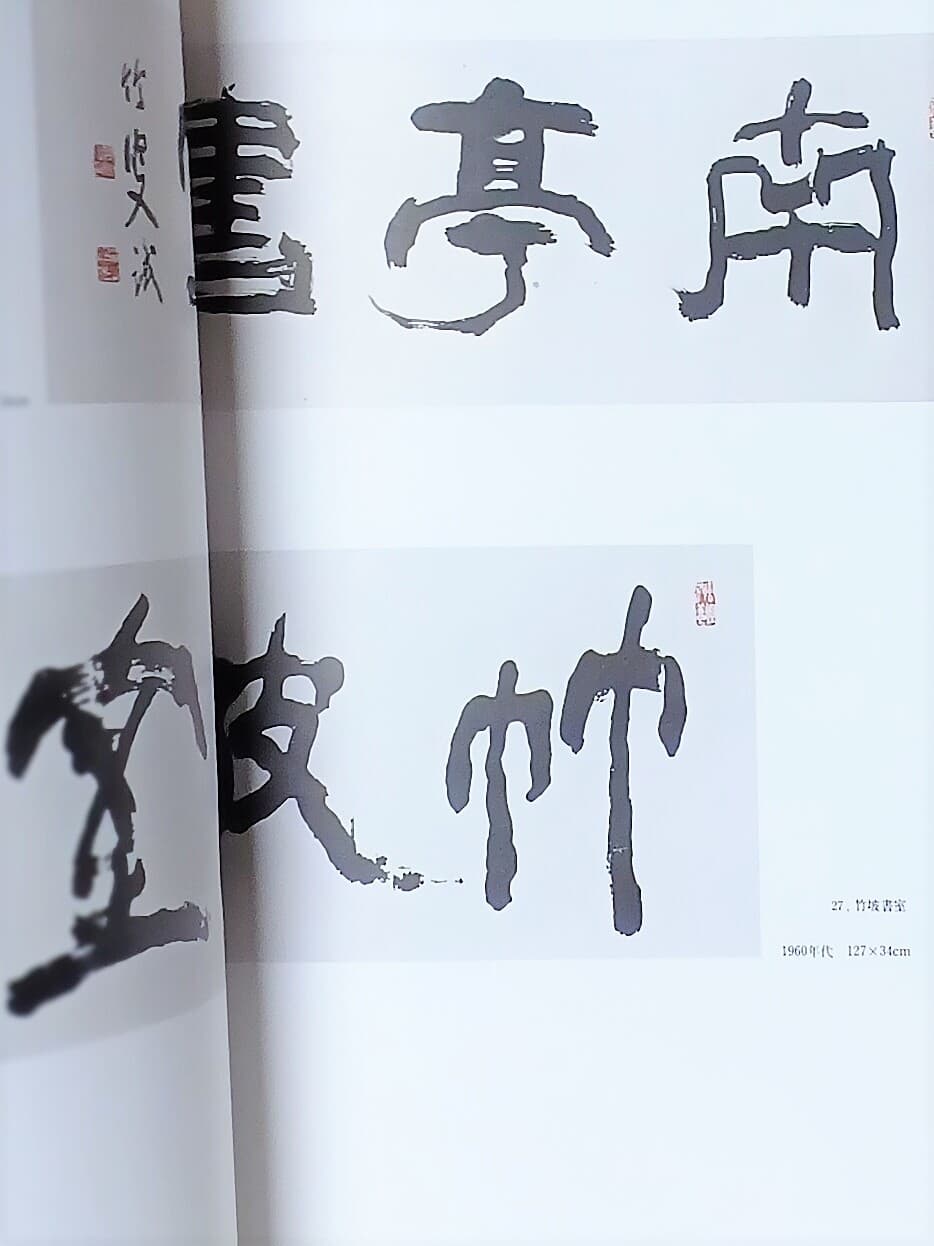 南亭書
竹叟
竹皮室
27. 竹坡書室
1960年代 127×34cm